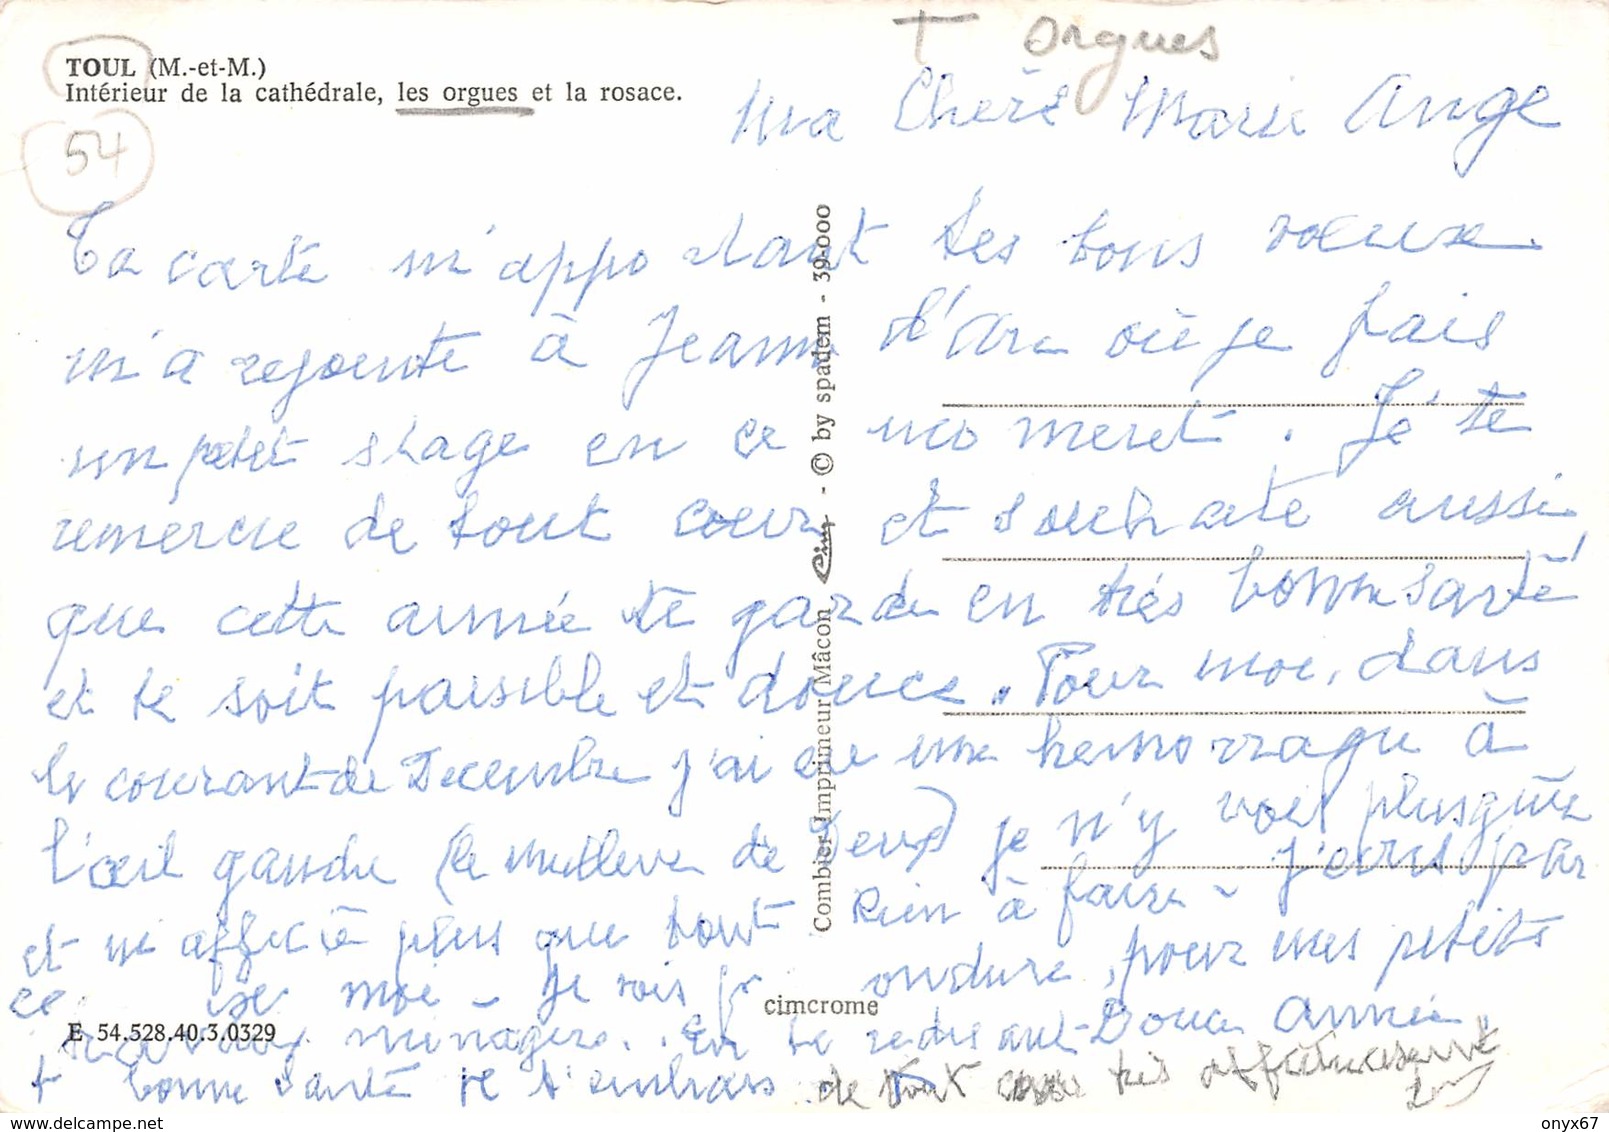 T orgues
TOUL (M.-et-M.)
Intérieur de la cathédrale, les orgues et la rosace.
54
Ma Chère Marie Ange
Ta carte m'apportant tes bons vœux
m'a rejointe à Jeanne d'Arc où je fais
un petit stage en ce moment. Je te
remercie de tout cœur et souhaite aussi
que cette année te garde en très bonne santé
et te soit paisible et douce. Pour moi, dans
le courant de Decembre j'ai eu une hemorragie à
l'œil gauche (le meilleur de deux) je n'y vois plus
et m'affecte plus que tout. Rien à faire - j'écris par
ce moi - Je vois pr conduire, pour mes petits
travaux ménagers. En te redisant Douce Année
+ bonne santé je t'embrasse de tout cœur très affectueusement
© by spadem - 39.000
Combier Imprimeur Mâcon
cimcrome
E 54.528.40.3.0329
onyx67